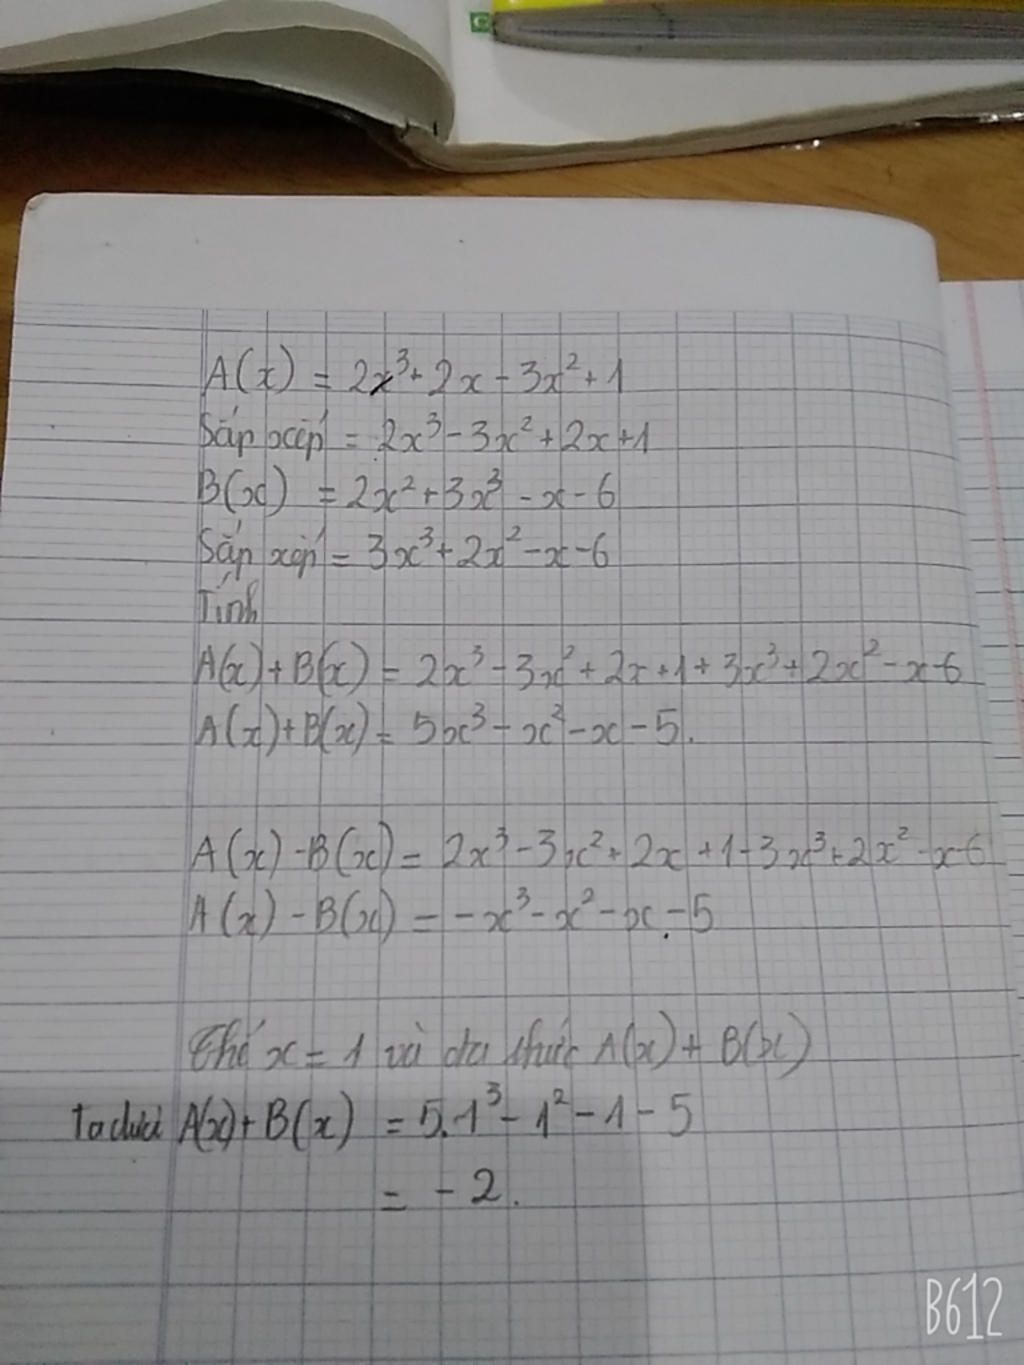 C
A(x) = 2x³ + 2x - 3x² + 1
Sắp xếp = 2x³ - 3x² + 2x + 1
B(x) = 2x² + 3x³ - x - 6
Sắp xếp = 3x³ + 2x² - x - 6
Tính
A(x) + B(x) = 2x³ - 3x² + 2x + 1 + 3x³ + 2x² - x - 6
A(x) + B(x) = 5x³ - x² - x - 5.
A(x) - B(x) = 2x³ - 3x² + 2x + 1 - 3x³ + 2x² - x - 6
A(x) - B(x) = -x³ - x² - x - 5
Thế x = 1 và đa thức A(x) + B(x)
Ta được A(x) + B(x) = 5.1³ - 1² - 1 - 5
= -2.
B612